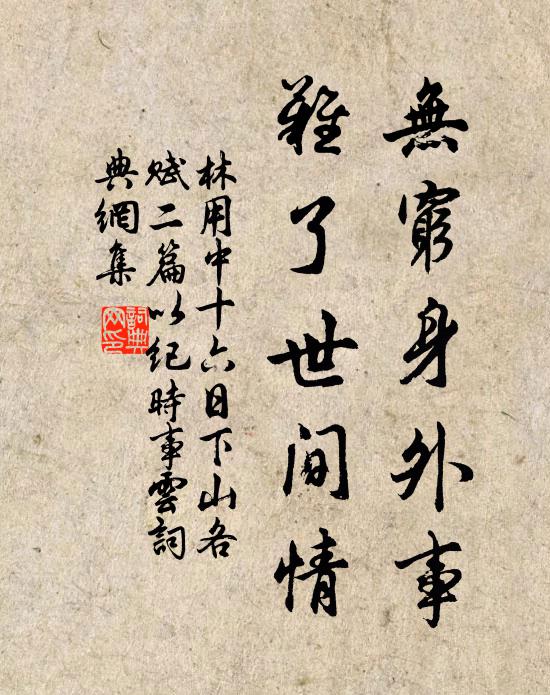 無窮身外事
難了世間情
林用中十六日下山各
賦二篇以紀時事雲詞
典網集
詞典
網印